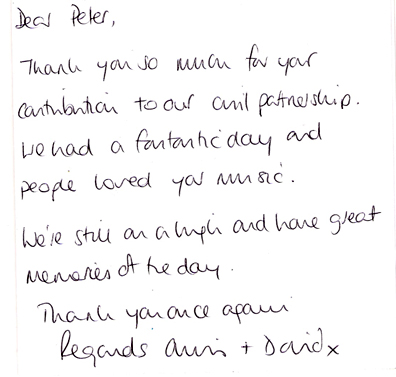 Dear Peter,
Thank you so much for your
contribution to our civil partnership.
We had a fantastic day and
people loved your music.
We're still on a high and have great
memories of the day.
Thank you once again
Regards Chris + David x